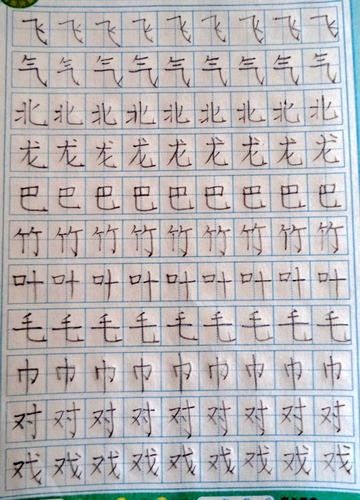 飞飞飞飞飞飞飞飞飞
气气气气气气气气气
北北北北北北北北北
龙龙龙龙龙龙龙龙龙
巴巴巴巴巴巴巴巴巴
竹竹竹竹竹竹竹竹竹
叶叶叶叶叶叶叶叶叶
毛毛毛毛毛毛毛毛毛
巾巾巾巾巾巾巾巾巾
对对对对对对对对对
戏戏戏戏戏戏戏戏戏